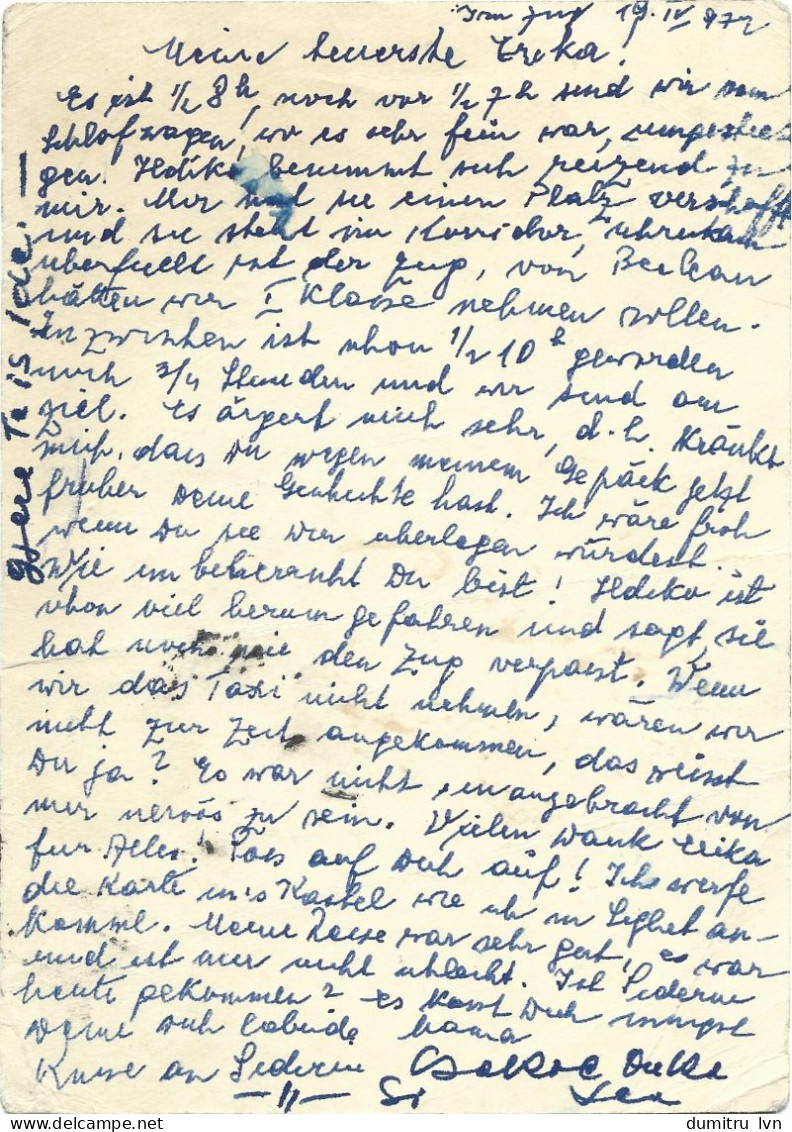 Im Zug 19. IV 972
Meine teuerste Erika!
Es ist 1/2 8 h, noch vor 1/2 7 h sind wir vom
Schlafwagen, wo es sehr fein war, umgestie
gen. Ildiko benimmt sich reizend zu
mir. Mir hat sie einen Platz verschafft
und sie steht im Korridor,
überfüllt ist der Zug, von Beclean
hätten wir I Klasse nehmen sollen.
Inzwischen ist schon 1/2 10 h geworden
noch 3/4 Stunden und wir sind am
Ziel. Es ärgert mich sehr, d.h. kränkt
mich, dass Du wegen meinem Gepäck jetzt
früher Deine Geschichte hast. Ich wäre froh
wenn Du sie Dir überlegen würdest.
Wie unbeherrscht Du bist! Ildiko ist
schon viel herumgefahren und sagt, sie
hat noch nie den Zug verpasst. Wenn
wir das Taxi nicht nehmen, wären wir
nicht zur Zeit angekommen, das weisst
Du ja? Es war nicht unangebracht von
mir nervös zu sein. Vielen Dank Erika
für Alles! Pass auf Dich auf! Ich werfe
die Karte in's Kastel wie ich in Sighet an-
komme. Meine Reise war sehr gut, es war
und ist mir nicht schlecht. Ist
heute gekommen? Es küsst Dich innigst
Deine Dich liebende Mama
Küsse an
— 11 —
Gyere Te is ide! —
dumitru lvn